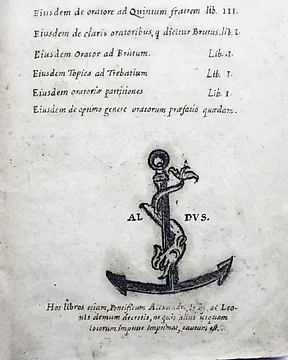 Eiusdem de oratore ad Quintum fratrem lib. III.
Eiusdem de claris oratoribus, q̃ dicitur Brutus. lib. I.
Eiusdem Orator ad Brutum. Lib. I.
Eiusdem Topica ad Trebatium Lib. I.
Eiusdem oratoriæ partitiones Lib. I.
Eiusdem de optimo genere oratorum præfatio quædam.
AL DVS.
Hos libros etiam, Pontificum Alexandri, ac Leo-
nis demum decretis, ne quis alius usquam
locorum impune imprimat, cautum est.